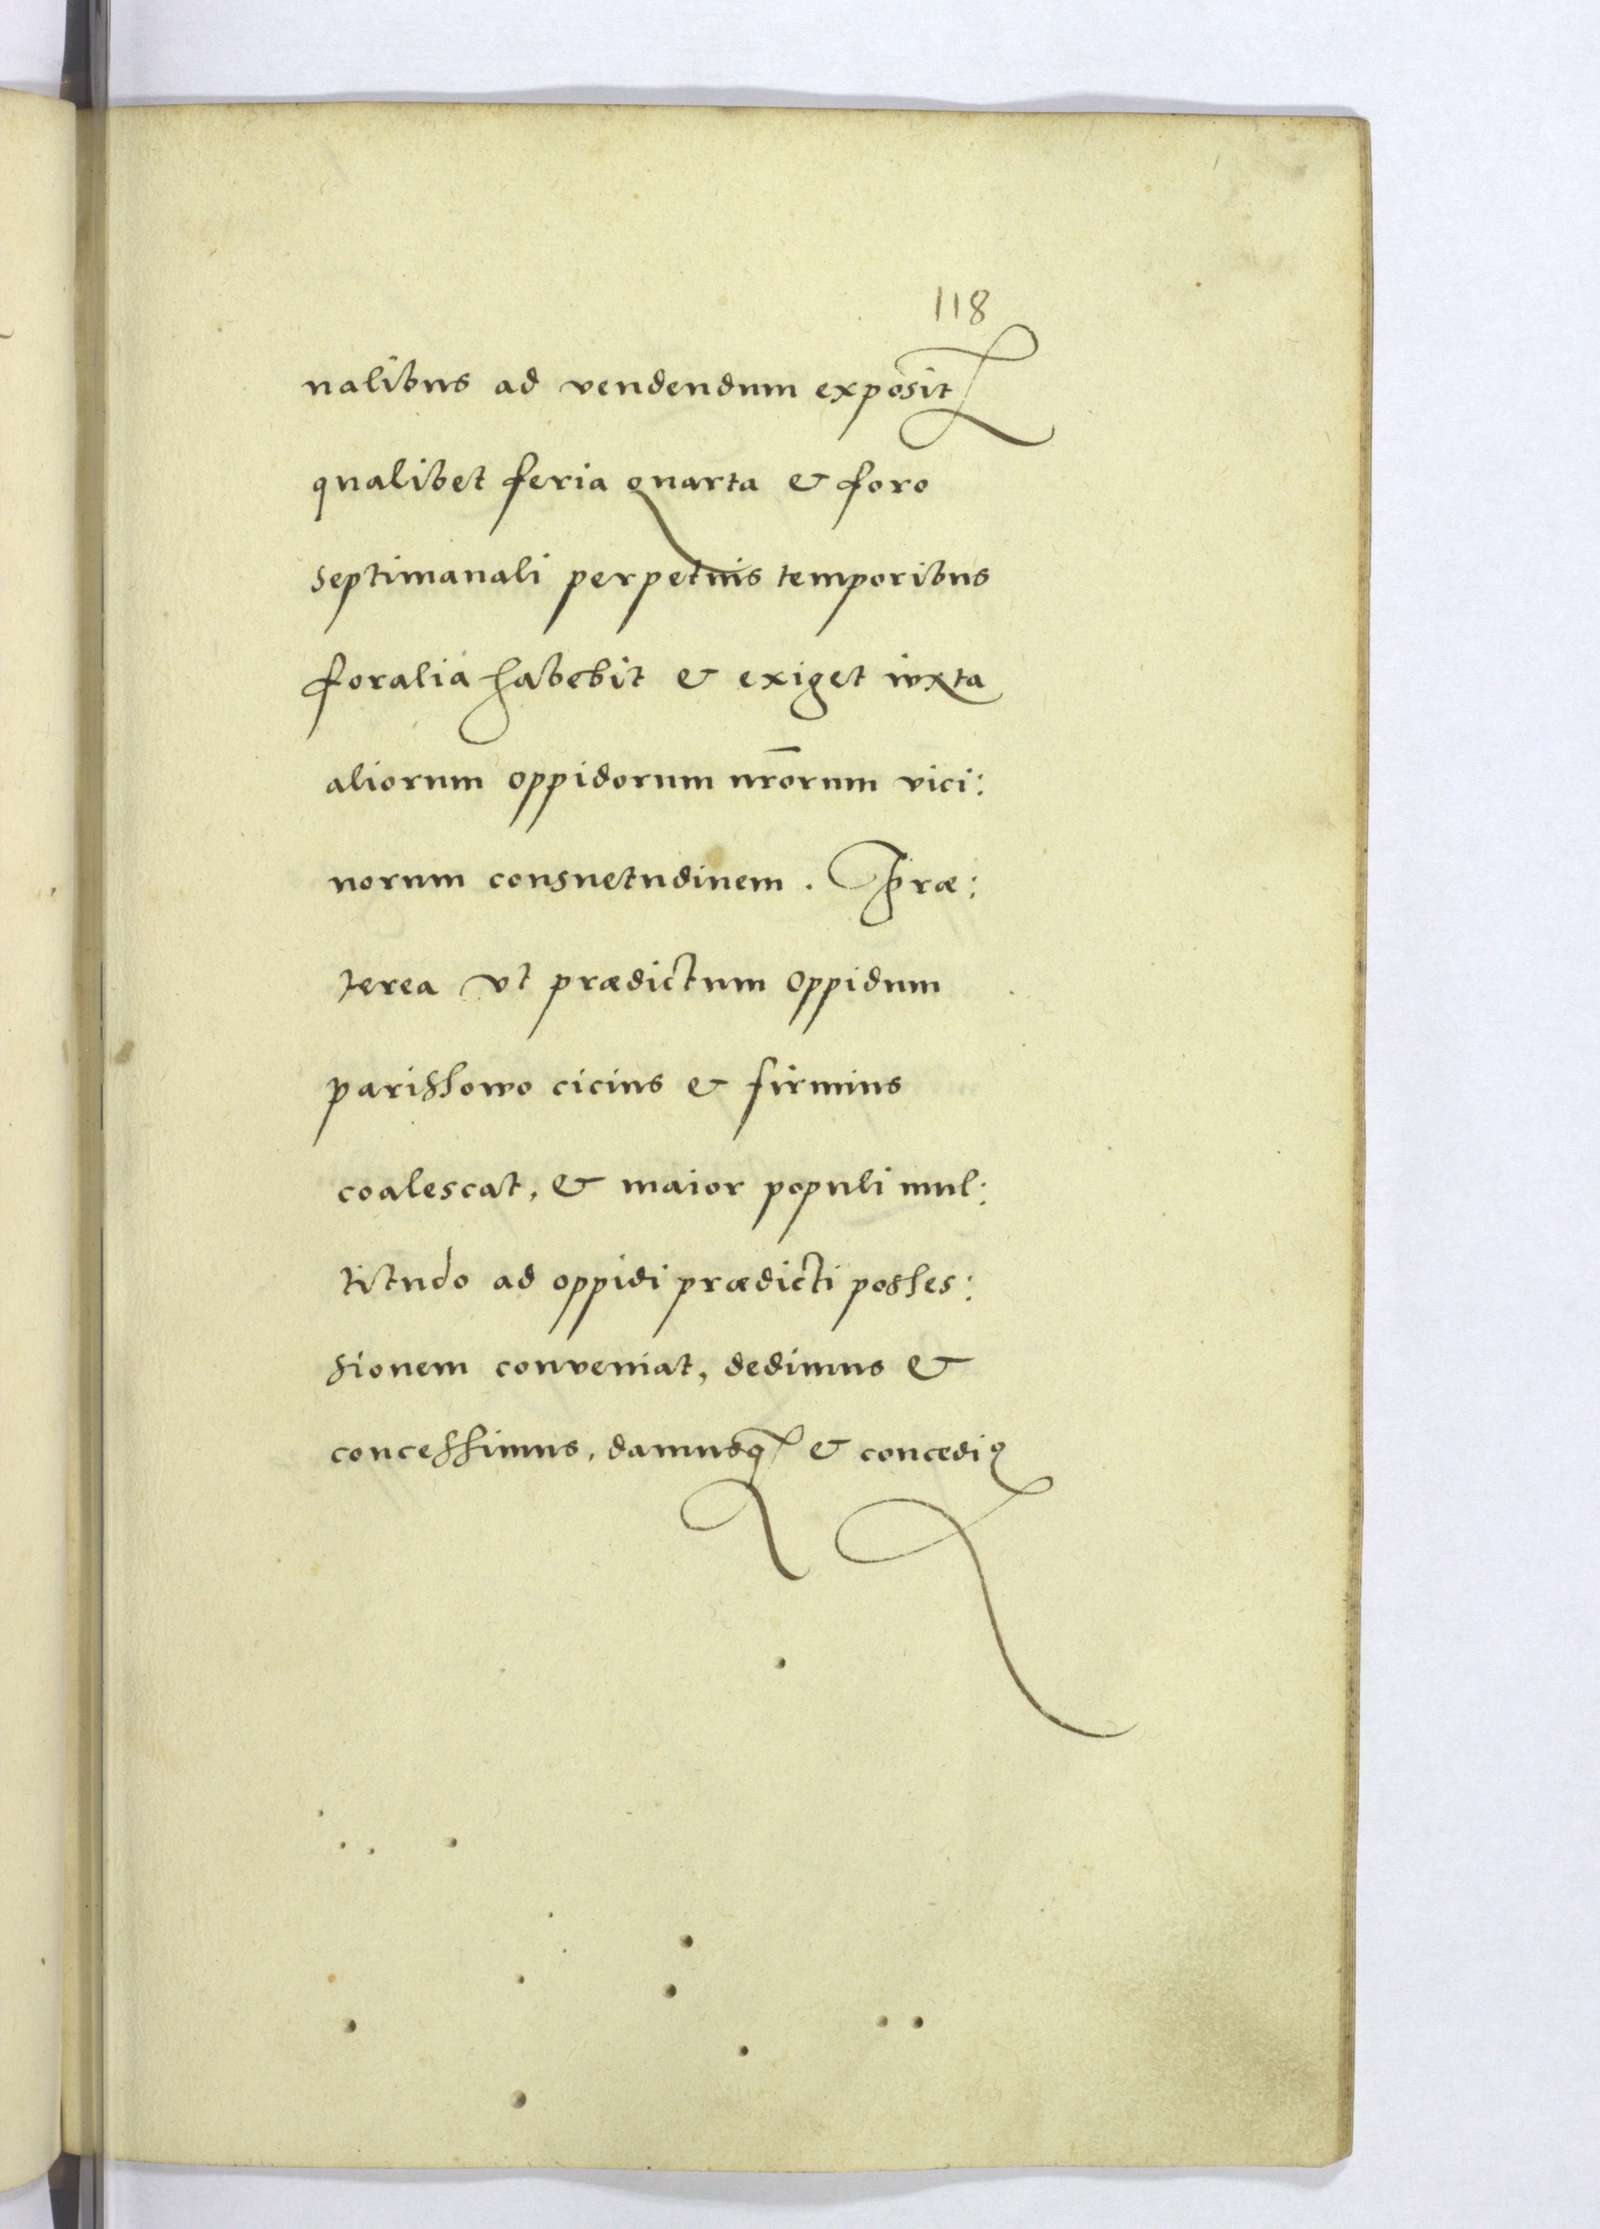 118
nalibus ad vendendum exposit
qualibet feria quarta & foro
septimanali perpetuis temporibus
foralia habebit & exiget iuxta
aliorum oppidorum nr̄orum vici:
norum consuetudinem. Præ:
terea vt prædictum oppidum
parissowo cicius & firmius
coalescat, & maior populi mul:
titudo ad oppidi prædicti posses:
sionem conveniat, dedimus &
concessimus, damusq & concediꝯ